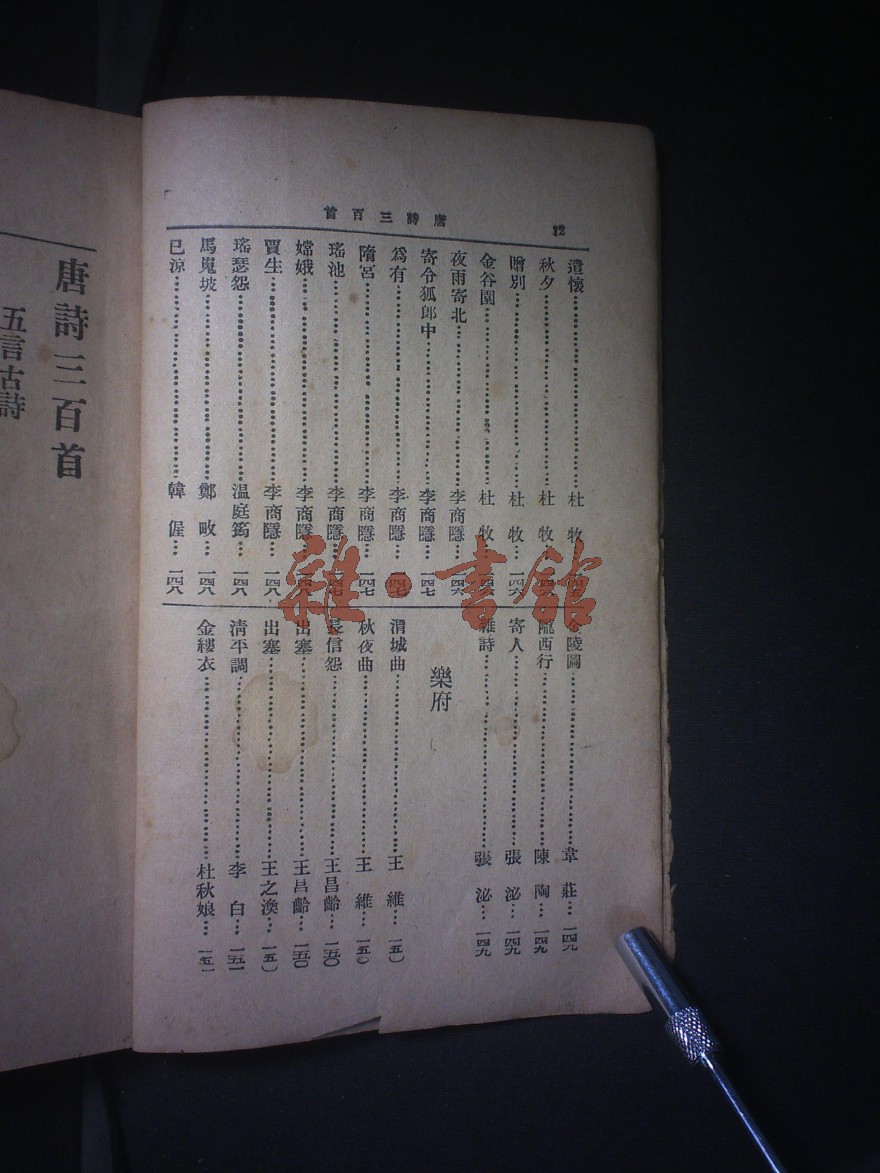 唐詩三百首
12
遣懷……杜牧…一四五
秋夕……杜牧…一四六
贈別……杜牧…一四六
金谷園……杜牧…一四六
夜雨寄北……李商隱…一四六
寄令狐郎中……李商隱…一四七
爲有……李商隱…一四七
隋宮……李商隱…一四七
瑤池……李商隱…一四七
嫦娥……李商隱…一四八
賈生……李商隱…一四八
瑤瑟怨……温庭筠…一四八
馬嵬坡……鄭畋…一四八
已凉……韓偓…一四八
金陵圖……韋莊…一四九
隴西行……陳陶…一四九
寄人……張泌…一四九
雜詩……張泌…一四九
樂府
渭城曲……王維…一五〇
秋夜曲……王維…一五〇
長信怨……王昌齡…一五〇
出塞……王昌齡…一五〇
出塞……王之渙…一五〇
清平調……李白…一五一
金縷衣……杜秋娘…一五一
唐詩三百首
五言古詩
雜·書館